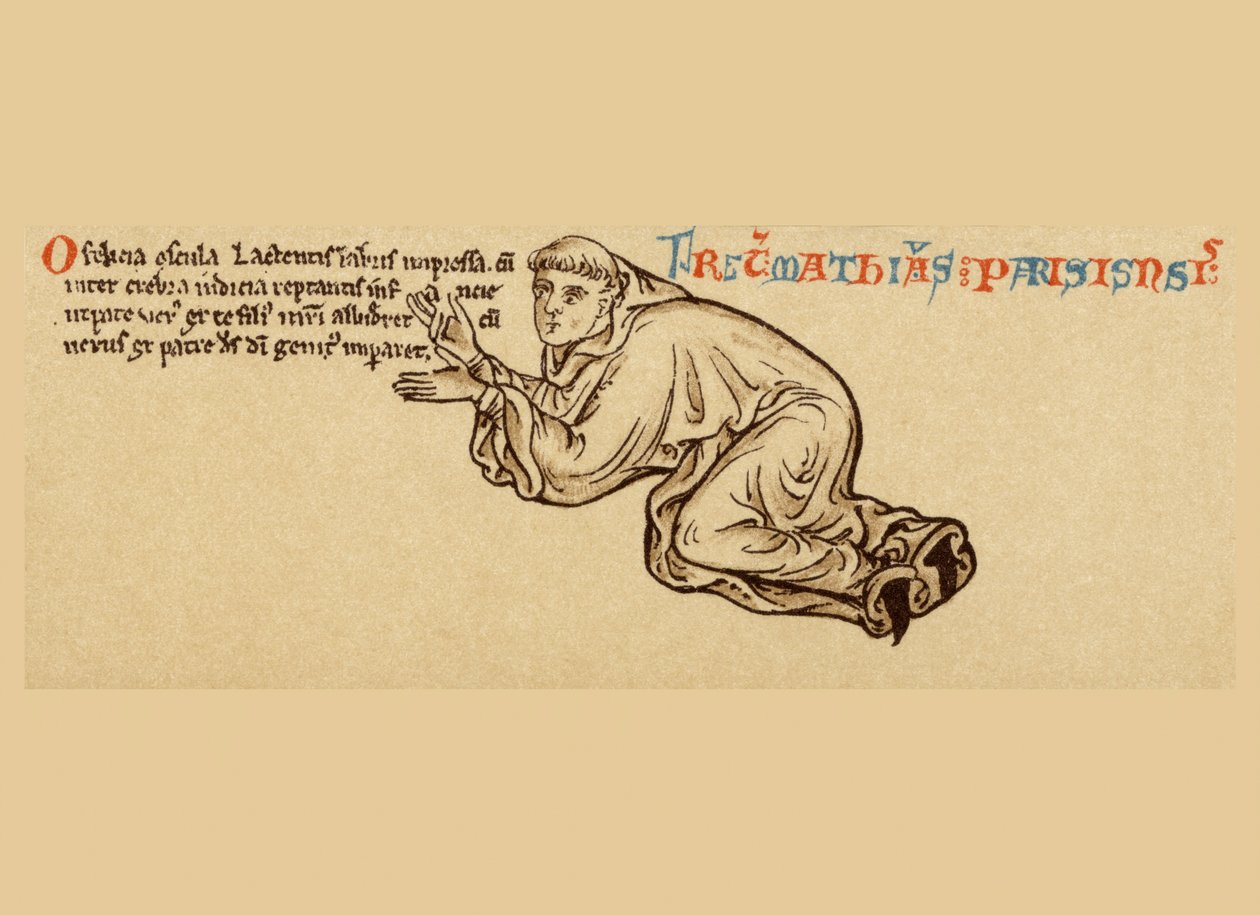 O felicia oscula lactentis labris impressa. cū
inter crebra indicia reptantis infancie
utpote verꝰ ex te filiꝰ m̄ri alluderet cū
verus ex patre d̄s dī genitꝰ imꝑaret.
FRET̃ MATHIAS PARISIENSIS